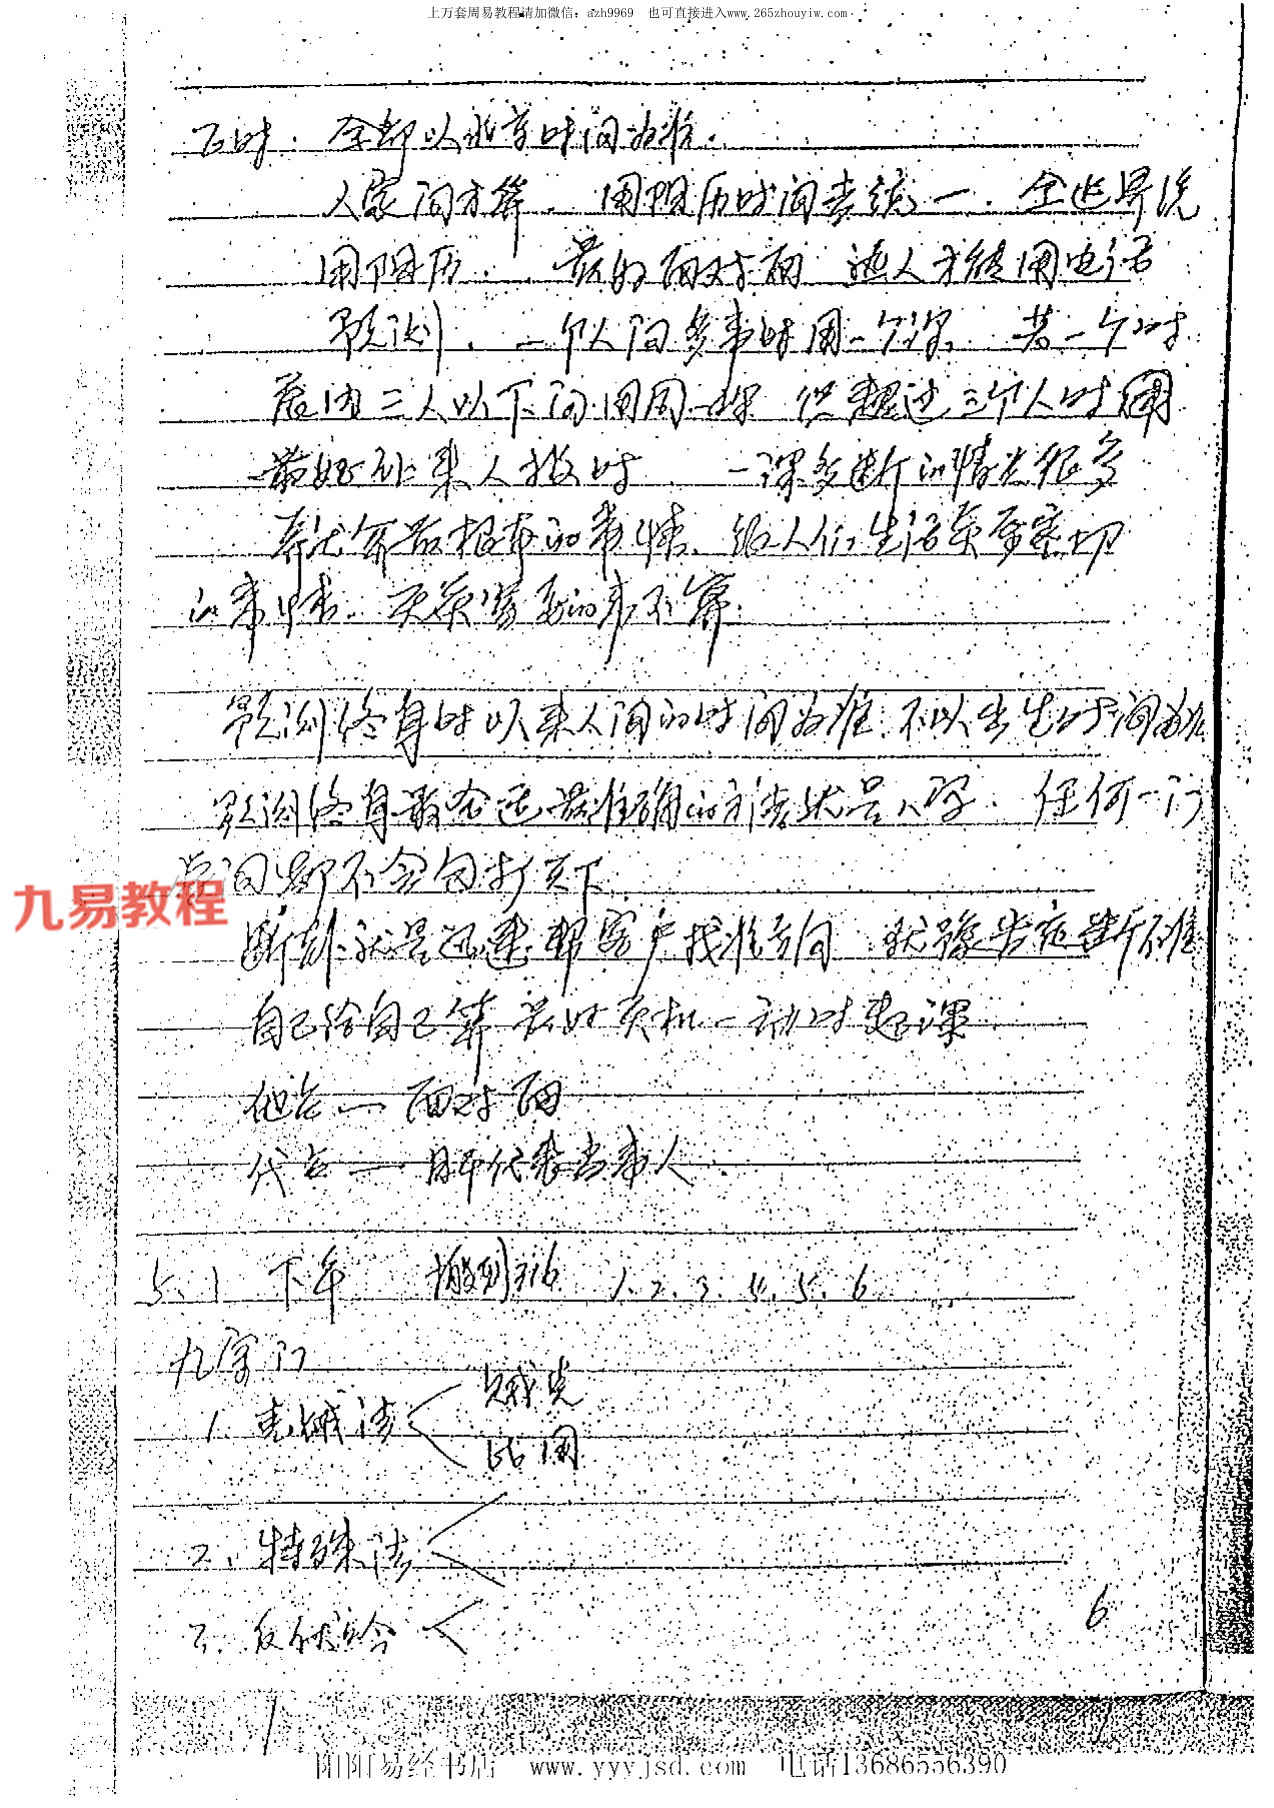 上万套周易教程请加微信：azh9969 也可直接进入www.265zhouyiw.com
时. 全都以北京时间为准.
人家问才算. 用阴历时间来统一. 全世界没
用阴历. 最好面对面 远人才能用电话
预测. 一个人问多事时用一个课. 若一个时
辰内三人以下问用同一课 但超过三个人时用
最好让来人报时 一课多断的情况很多
算最根本的事情. 给人们生活关系密切
的事情. 的事不算.
预测终身时以来人问的时间为准. 不以出生时间为准
预测终身最合适最准确的方法就是八字. 任何一门
学问都不会包打天下
九易教程
断卦就是迅速帮客户找准方向 犹豫断不准
自己给自己算 最好灵机一动时起课
他占 — 面对面
代占 — 用年代表当事人
5.1 下午 1.2.3.4.5.6
九宗门
1. 克贼法 贼克
比用
二. 特殊法
三. 反伏吟
6
阳阳易经书店 www.yyyjsd.com 电话13686556390